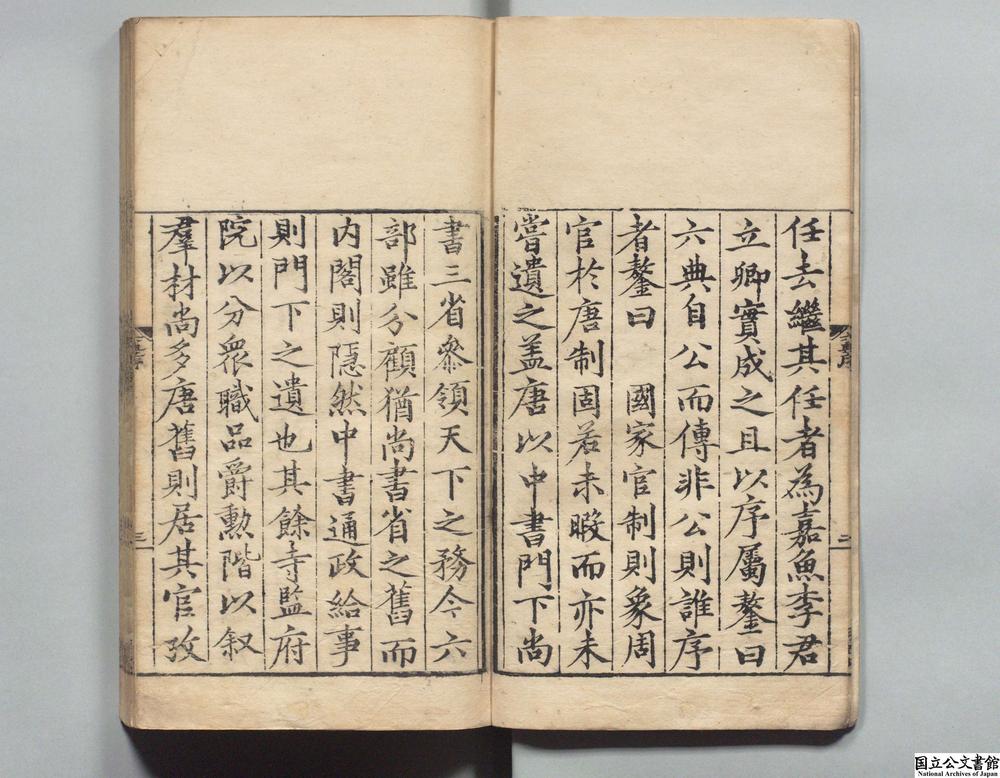 任去繼其任者為嘉魚李君
立卿實成之且以序屬鏊曰
六典自公而傳非公則誰序
者鏊曰　國家官制則象周
官於唐制固若未暇而亦未
嘗遺之盖唐以中書門下尚
書三省叅領天下之務今六
部雖分顧猶尚書省之舊而
内閣則隱然中書通政給事
則門下之遺也其餘寺監府
院以分衆職品爵勲階以叙
羣材尚多唐舊則居其官攷
二
三
国立公文書館
National Archives of Japan